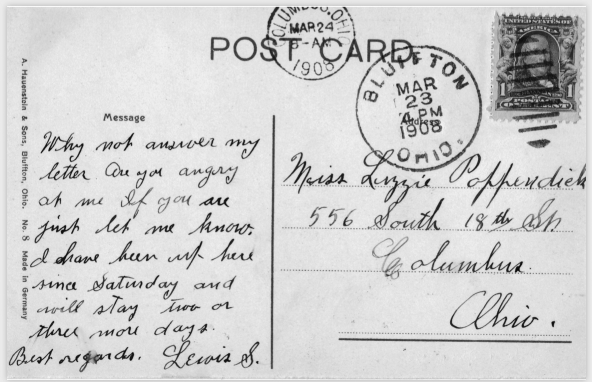 COLUMBUS, OHIO
MAR 24
8-AM
1908
POST CARD
BLUFFTON
MAR
23
4 PM
1908
OHIO.
UNITED STATES OF
AMERICA
1
1
POSTAGE
ONE CENT
A. Hauenstein & Sons, Bluffton, Ohio. No. 8 Made in Germany
Message
Why not answer my
letter Are you angry
at me If you are
just let me know.
I have been up here
since Saturday and
will stay two or
three more days.
Best regards. Lewis S.
Address
Miss Lizzie Poppendick
556 South 18th St.
Columbus.
Ohio.